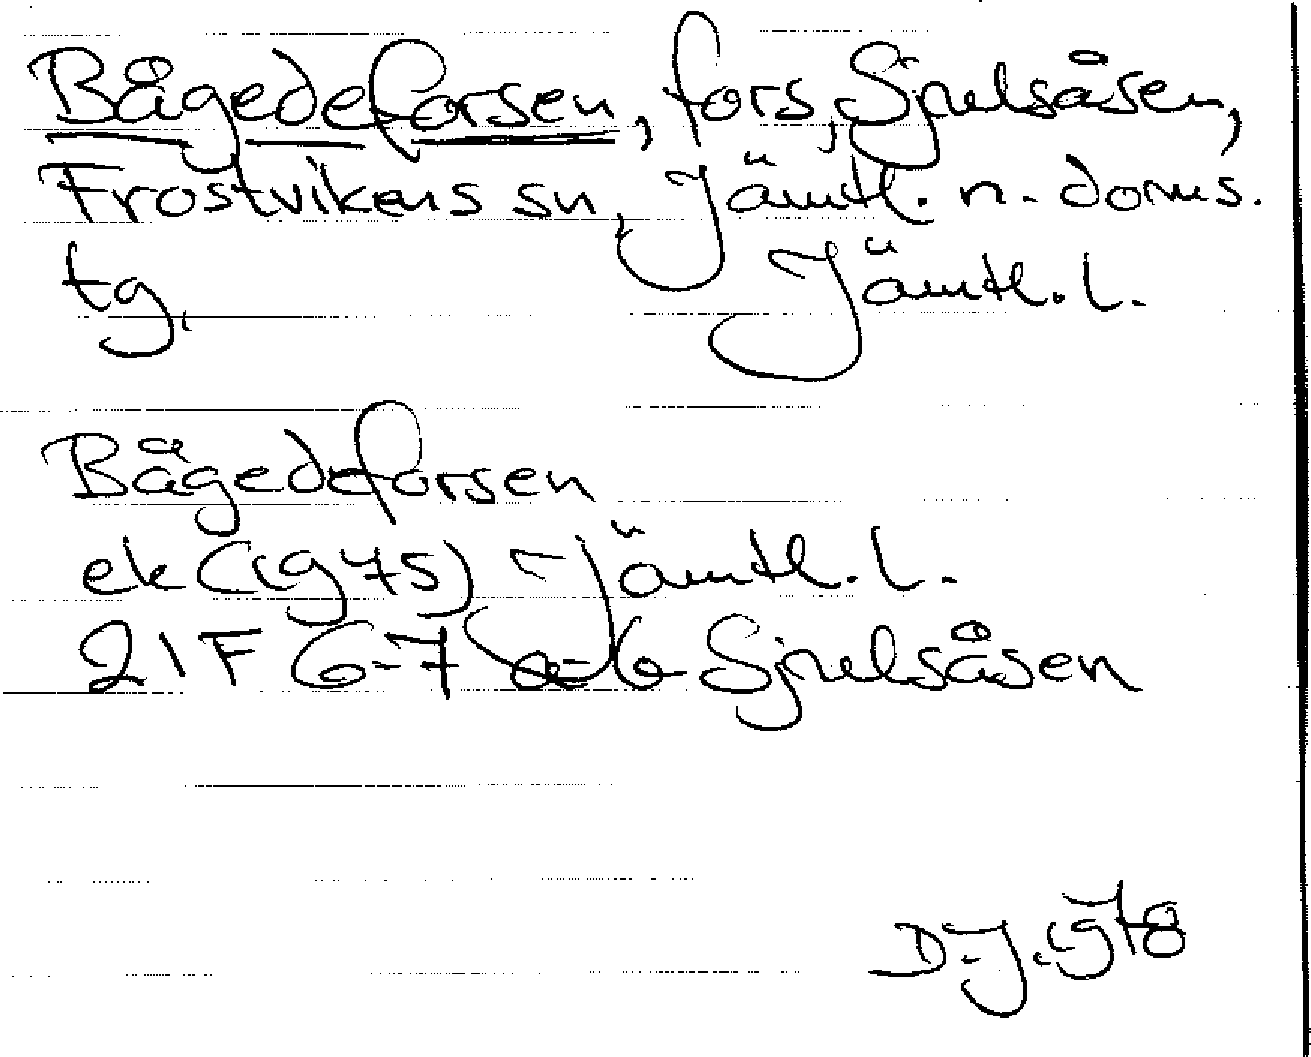 Bågedeforsen, fors, Sjulsåsen,
Frostvikens sn, Jämtl. n. doms.
tg, Jämtl. l.
Bågedeforsen
ek (1975) Jämtl. l.
21F 6-7 a-b Sjulsåsen
D.J. 1978